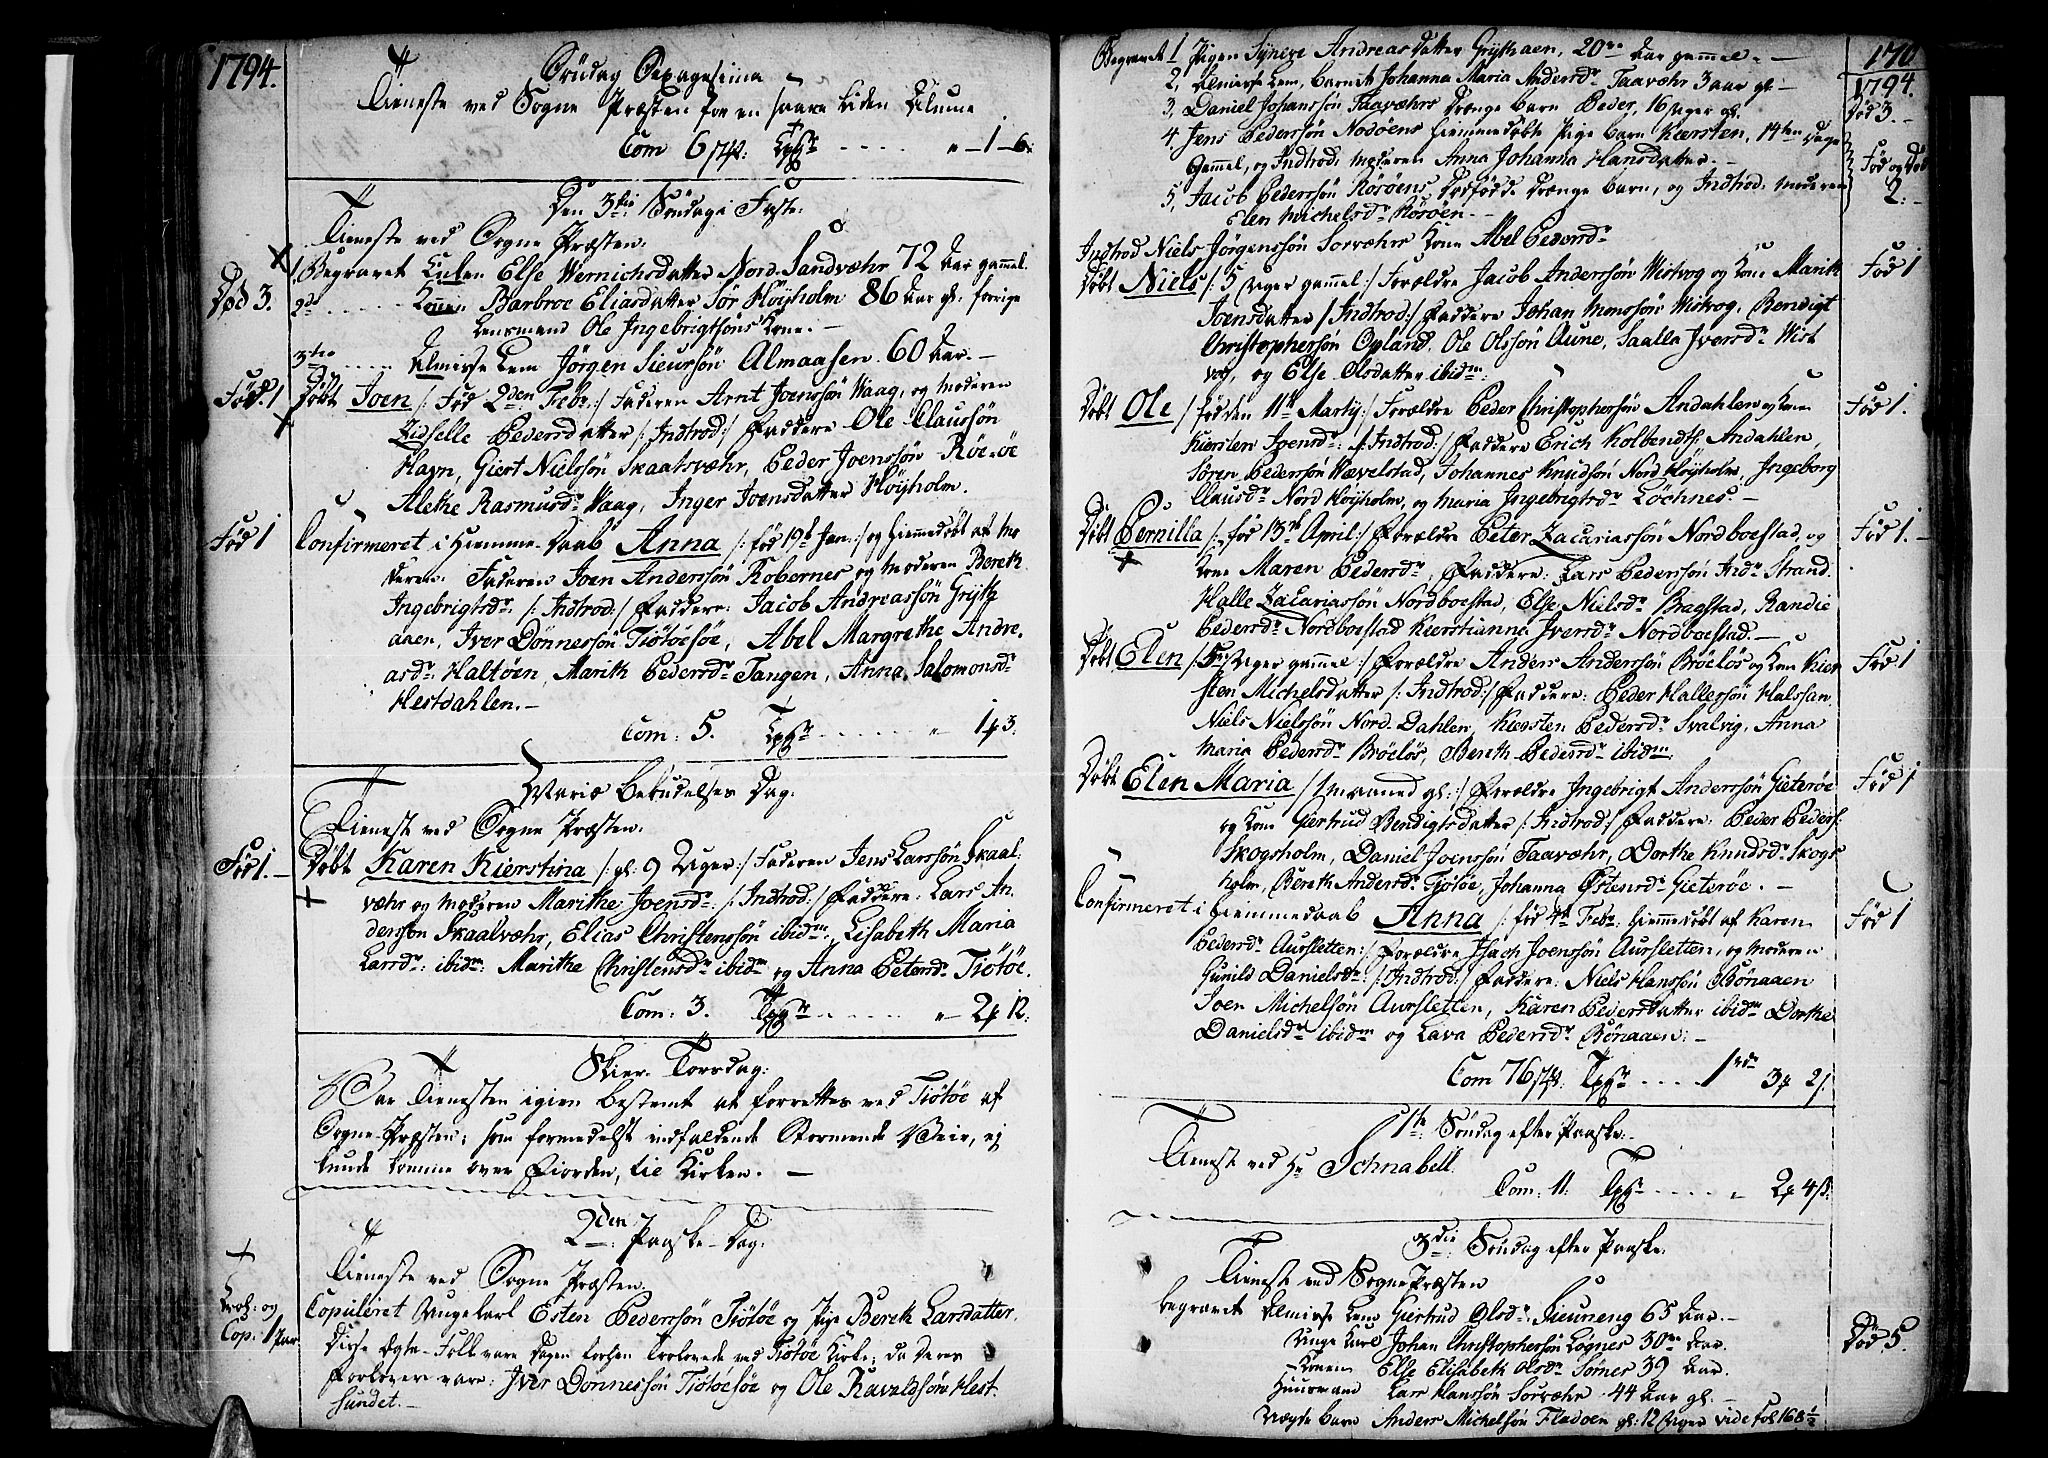 1794.
Söndag Sexagesima
Tieneste ved Sogne Præsten for en saare liden Almue
Com 6
1 - 6
Den 3die Söndag i Faste
Tieneste ved Sogne Præsten.
Død 3.
1. Begravet Else Wernichsdatter Nord-Sandvæhr 72 Aar gammel.
2d Konen Barbroe Eliasdatter Sør Høyholm 86 Aar gl: forrige
Lensmand Ole Ingebrigtsøns Kone.
3tie Almisse Lem Jørgen Sieursøn Almaasen. 60 Aar.
Fød. 1
Døbt Joen /: Fød 2den Febr: :/ Faderen Arnt Joensøn Waag, og Moderen
Zidselle Pedersdatter /: Indtrod: :/ Faddere Ole Claussøn
Havn, Giert Nielssøn Skaalvæhr, Peder Joenssøn Röe-øe
Alethe Rasmusdr Waag, Inger Joensdatter Høyholm.
Fød 1
Confirmeret i Hiemme-Daab Anna /: fød 19de Jan: :/ og hiemmedøbt af Mo
deren: Faderen Joen Anderssøn Kobernes og Moderen Bereth
Ingebrigtsdr /: Indtrod: :/ Faddere: Jacob Andreassøn Gryth
aaen, Iver Dønnessøn Tiøtøesøe, Abel Margrethe Andre
asdr Haltøen, Marith Pedersdr Tangen, Anna Salomonsdr
Hestdahlen.
Com: 5.
1 3.
Mariæ Bebudelses Dag:
Tieneste ved Sogne Præsten.
Fød 1.
Døbt Karen Kierstina /: gl: 9 Uger :/ Faderen Jens Larssøn Skaal
væhr og Moderen Marithe Joensdr: /: Indtrod: :/ Faddere: Lars An
derssøn Skaalvæhr, Elias Christenssøn ibidm: Lisabeth Maria
Larsdr: ibidm: Marithe Christensdr ibidm og Anna Petersdr Tiøtøe.
Com: 3.
2 12.
Skier-Torsdag:
Var Tienesten igien bestemt at forrettes ved Tiøtøe af
Sogne-Præsten; som formedelst indfaldende Stormende Veir, ej
kunde komme over Fiorden, til Kirken.
2den Paaske-Dag:
Tieneste ved Sogne Præsten.
Trol: og
Cop: 1 Par
Copuleret Ungekarl Esten Pederssøn Tiøtøe og Pige Bereth Larsdatter.
Disse Ægte-Folk vare Dagen forhen Trolovede ved Tiøtøe Kirke; da deres
Forlovere vare: Iver Dønnessøn Tiøtøesøe og Ole Ravaldsøn Hest
sundet.
170
1794.
Begravet 1 Pigen Syneve Andreasdatter Grythaen, 20 Aar gammel.
2, Almisse Lem, barnet Johanna Maria Andersdr Taavæhr 3 aar gl:
Død 3.
3, Daniel Johanssøn Taavæhrs Drænge barn Peder, 16 Uger gl.
4 Jens Pederssøn Nodøens hiemmedøbte Pige barn Kiersten, 14ten Dage
gammel, og Indtrod: Moderen Anna Johanna Hansdatter.
Fød og Død
2.
5, Jacob Pederssøn Rørøens, Dødfødde Drænge barn, og Indtrod: Moderen
Elen Michelsdr Rørøen.
Indtrod Niels Jørgenssøn Sorvæhrs Kone Abel Pedersdr
Fød 1
Døbt Niels /: 5 Uger gammel :/ Forældre Jacob Anderssøn Wistvog og Kone Marith
Joensdatter /: Indtrod: :/ Faddere Johan Monssøn Wistvog, Bendigt
Christopherssøn Opland, Ole Olssøn Aune, Saalla Iversdr Wist
vog, og Else Olsdatter ibidm:
Fød 1.
Døbt Ole /: fød den 11te Marty :/ Forældre Peder Christopherssøn Andahlen og Kone
Kiersten Joensdr: /: Indtrod: :/ Faddere Erich Kolbendts: Andahlen,
Søren Pederssøn Wævelstad, Johannes Knudsøn Nord Høyholm, Ingeborg
Clausdr Nord Høyholm, og Maria Ingebrigtsdr Løchnes.
Fød 1.
Døbt Pernilla /: fød 13de April :/ Forældre Peter Zacariassøn Nordboestad, og
Kone Maren Pedersdr, Faddere: Lars Pederssøn Indr Strand
Halle Zacariassøn Nordboestad, Else Nielsdr Bagstad, Randie
Pedersdr Nordboestad Kierstianna Iversdr Nordboestad.
Fød 1
Døbt Elen /: 5 Uger gammel :/ Forældre Anders Anderssøn Brøeløs og Kone Kier
sten Michelsdatter /: Indtrod: :/ Faddere: Peder Hallessøn Halssan
Niels Nielssøn Nord-Dahlen, Kiersten Pedersdr Svalvig, Anna
Maria Pedersdr Brøeløs, Bereth Pedersdr ibidm:
Fød 1
Døbt Elen Maria /: 1 Maaned gl: :/ Forældre Ingebrigt Anderssøn Gieterøe
og Kone Giertrud Bendigtsdatter /: Indtrod: :/ Faddere: Peder Peders:
Skogsholm, Daniel Joenssøn Taavæhr, Dorthe Knudsdr Skogs
holm, Bereth Andersdr Tjøtøe, Johanna Østensdr Gieterøe.
Fød 1
Confirmeret i Hiemmedaab Anna /: fød 4de Febr: hiemmedøbt af Karen
Pedersdr Aursletten :/ Forældre Isach Joenssøn Aursletten, og Moderen
Gunild Danielsdr: /: Indtrod: :/ Faddere: Niels Hanssøn Bønaaen
Joen Michelssøn Aursletten, Karen Pedersdatter ibidm Dorthe
Danielsdr ibidm og Lava Pedersdr Bønaaen:
Com 76
1 3 2
1te Søndag efter Paaske:
Tieneste ved Hr Schnabell.
Com: 11:
2 4
3die: Søndag efter Paaske:
Tieneste ved Sogne Præsten
Død 5.
begravet Almisse Lem Giertrud Olsdr: Sieuneng 65 Aar.
Unge Karl Johan Christopherssøn Løgnes 30 Aar.
Konen Else Elisabeth Olsdr Sørnes 39 Aar.
Huusmand Lars Hanssøn Sorvæhr 44 Aar gl:
Uægte barn Anders Michelsøn Fladøen gl: 12 Uger vide Fol 168½